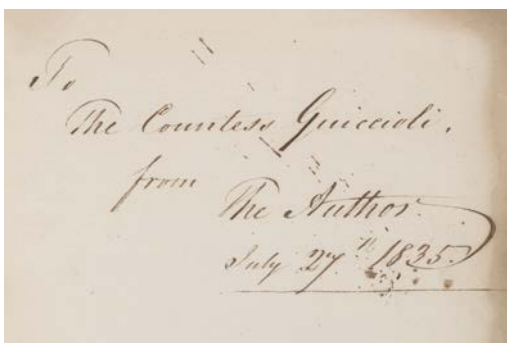 To
The Countess Guiccioli.
from
The Author.
July 27th 1835.